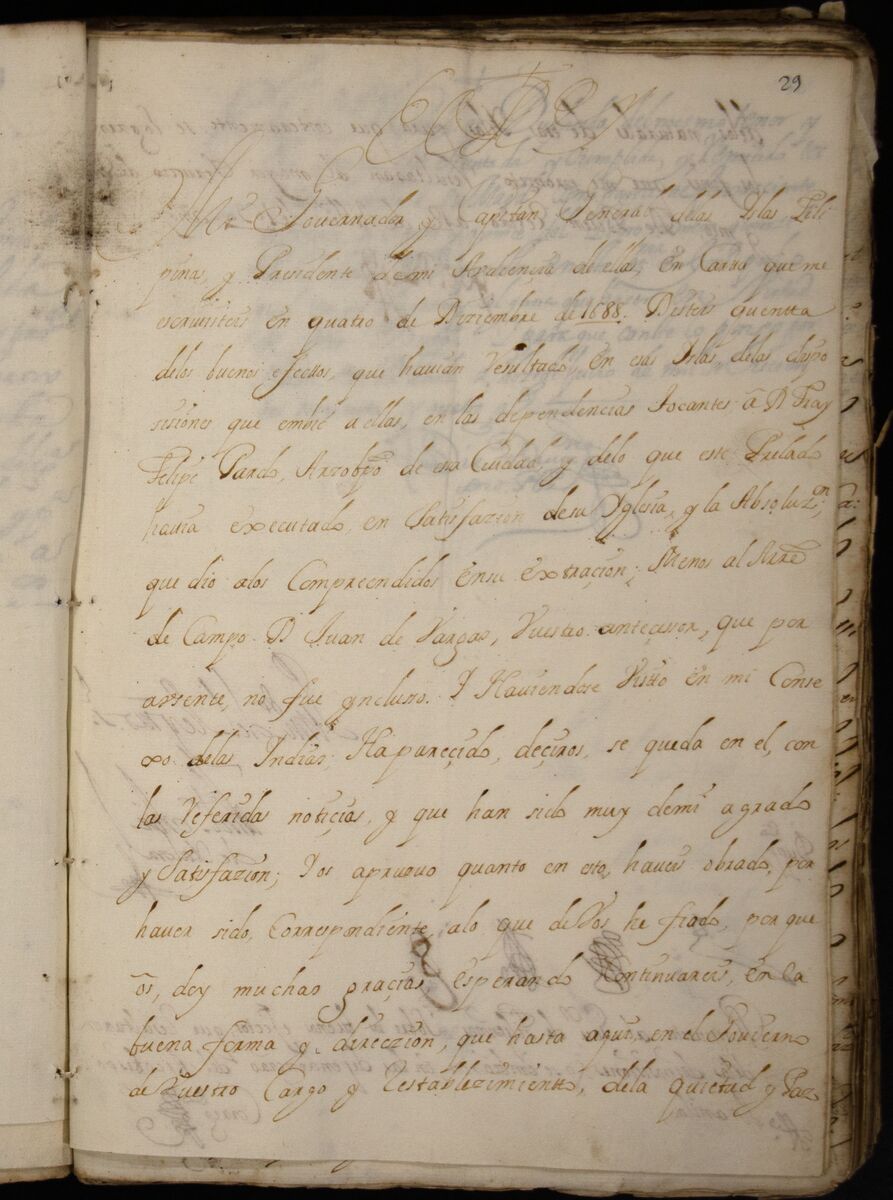 29
EL REY
Mi Gouernador, y Capitan General delas Islas Fili
pinas, y Presidente de mi Audiencia de ellas, en Carta que me
escriuisteis en quatro de Diziembre de 1688. Disteis quentta
delos buenos efectos, que hauian Resultado, en esas Islas, delas dispo
sisiones que embié a ellas, en las dependencias tocantes â D. Fray
Felipe Pardo, Arzobpô de esa Ciudad, y delo que este Prelado
hauia executado, en Satisfazion desu Yglesia, y la Absoluzon,
que dio alos Compreendidos ensu extraçion; Menos al Mrê
de Campo D. Juan de Vargas, Vuestro anteçessor, que por
aussente, no fue ynclusso. Y Hauiendose Visto en mi Conse
xo delas Indias, Ha pareçido, deçiros, se queda en el, con
las Referidas notiçias, y que han sido muy demi agrado
y Satisfazion; Y os aprueuo quanto en esto, haueis obrado, por
hauer sido, Correspondiente, alo que de Vos he fiado, por que
ôs, doy muchas graçias esperando Continuareis, en la
buena forma y direczion, que hasta aqui, en el Gouierno
de Vuestro Cargo y Restablezimientto, dela quietud y Paz